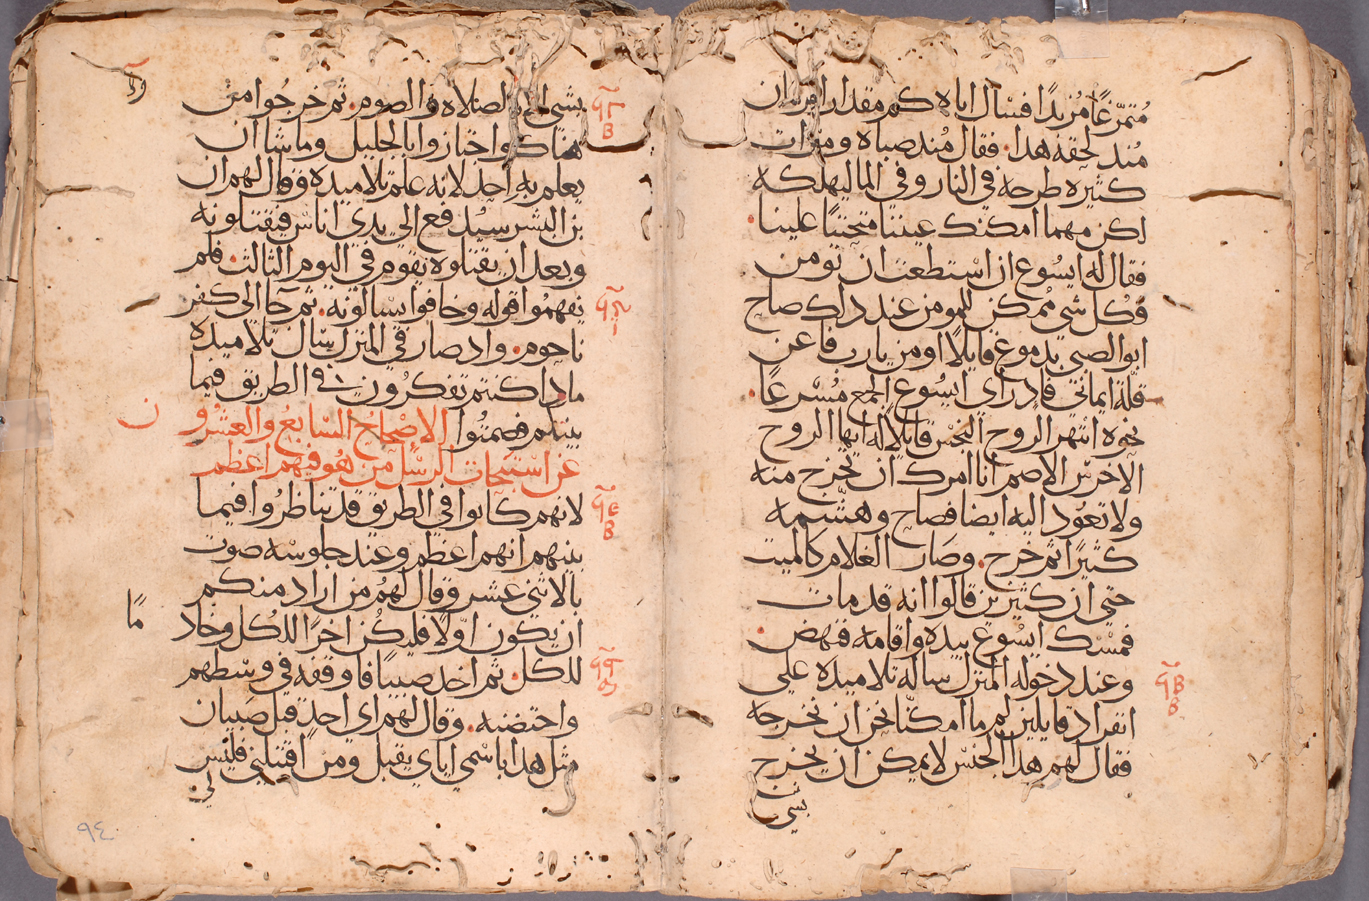 متمرغًا مزبدًا فسال اباه كم مقدار الزمان
مُند لحقه هدا. فقال مُند صباه ومرات
كثيره طرحه في النار وفي الما ليهلكه
لكن مهما امكنك عيننا متحننًا علينا.
فقال له ايسُوع ان استطعت ان تومن
فكُل شي مُمكن للمومن عند دلك صاح
ابوا الصبي بدموع قايلًا اومن يارب فاعن
قلة ايماني فاد راي ايسُوع الجمع مُسرعًا.
نحوه انتهر الروح النجس قايلًا له ايها الروح
الاخرس الاصم انا امرك ان تخرج منه
ولا تعُود اليه ايضا فصاح وهشّمه
كثيرًا ثم خرج. وصَار الغلام كالميت
حتي ان كثيرين قالوا انه قد مات
فمسك ايسُوع بيده واقامه فنهض.
وعند دخوله المنزل ساله تلاميده علي
انفراد قايلين لم ما امكنّا نحن ان نخرجه
فقال لهم هدا الجنس لا يمكن ان يخرج
بشي
بشي الا بالصلاه والصوم. ثم خرجُوا من
هناك واجتازوا بالجليل وما شا ان
يعلم به احد لانه علم تلاميده وقال لهم ان
بن البشر سيُدفع الي يدي اناس فيقتلونه
وبعد ان يقتلوه يقوم في اليوم الثالت. فلم
يفهمُوا قوله وخافوا يسالونه. ثم جا الي كفر
ناحوم. واد صار في المنزل سال تلاميده
مادا كنتم تفكرُون في الطريق فيما
بينكم فصمتُوا الاصحاح السابع والعشرُون
عن استبحات الرسل من هُو فيهم اعظم
لانهم كانوا في الطريق قد تناظرُوا فيما
بينهم ايهم اعظم وعند جلوسه صوت
بالاتني عشر وقال لهُم من اراد منكم
ان يكون اولًا فليكُن اخرًا للكُل وخادمًا
للكل. ثم اخد صبيًا فاوقفه في وسطهم
واحتضنه. وقال لهم اي احدٍ قبل صَبيان
مثل هدا باسمي اياي يقبل ومن اقتبلني فليس
لي
٩٤